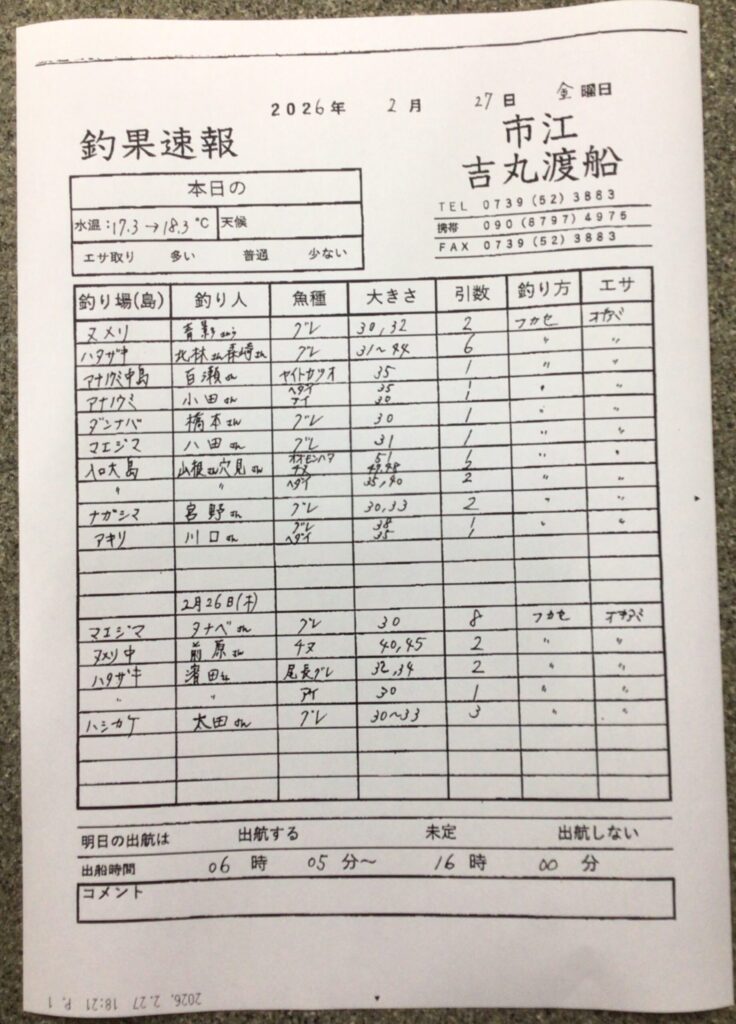 2026年 2月 27日 金曜日
釣果速報
市江
吉丸渡船
TEL 0739(52)3883
携帯 090(8797)4975
FAX 0739(52)3883
本日の
水温:17.3→18.3℃ 天候
エサ取り 多い 普通 少ない
釣り場(島) 釣り人 魚種 大きさ 引数 釣り方 エサ
ヌメリ 青影さん グレ 30,32 2 フカセ オキアミ
ハタザキ 北林さん森崎さん グレ 31~44 6 〃 〃
アナノウミ中島 百瀬さん ヤイトカツオ 35 1 〃 〃
アナノウミ 小田さん ヘダイ 35 1 〃 〃
アイ 30 1
ダンナバ 橋本さん グレ 30 1 〃 〃
マエジマ 八田さん グレ 31 1 〃 〃
入口大島 山根さん穴見さん 51 1 〃 〃
チヌ
〃 〃 ヘダイ 35,40 2 〃 〃
ナガシマ 宮野さん グレ 30,33 2 〃 〃
アキリ 川口さん グレ 38 1 〃 〃
ヘダイ 35 1
2月26日(木)
マエジマ タナベさん グレ 30 8 フカセ オキアミ
ヌメリ中 前原さん チヌ 40,45 2 〃 〃
ハタザキ 濱田さん 尾長グレ 32,34 2 〃 〃
〃 〃 アイ 30 1 〃 〃
ハシカケ 太田さん グレ 30~33 3 〃 〃
明日の出航は 出航する 未定 出航しない
出船時間 06時 05分~ 16時 00分
コメント
2026. 2.27 18:21 P. 1